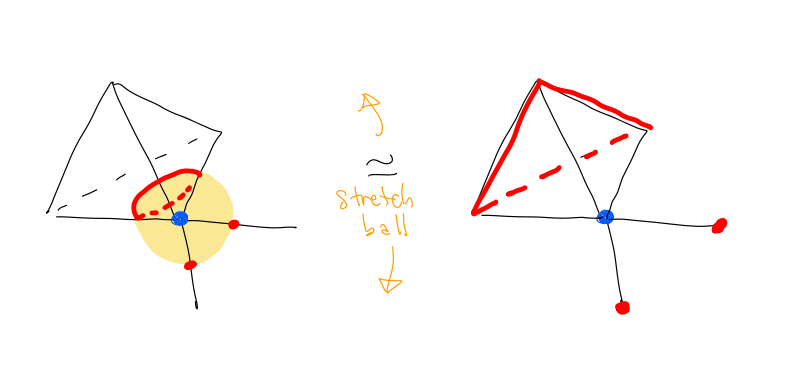 ≃
stretch
ball